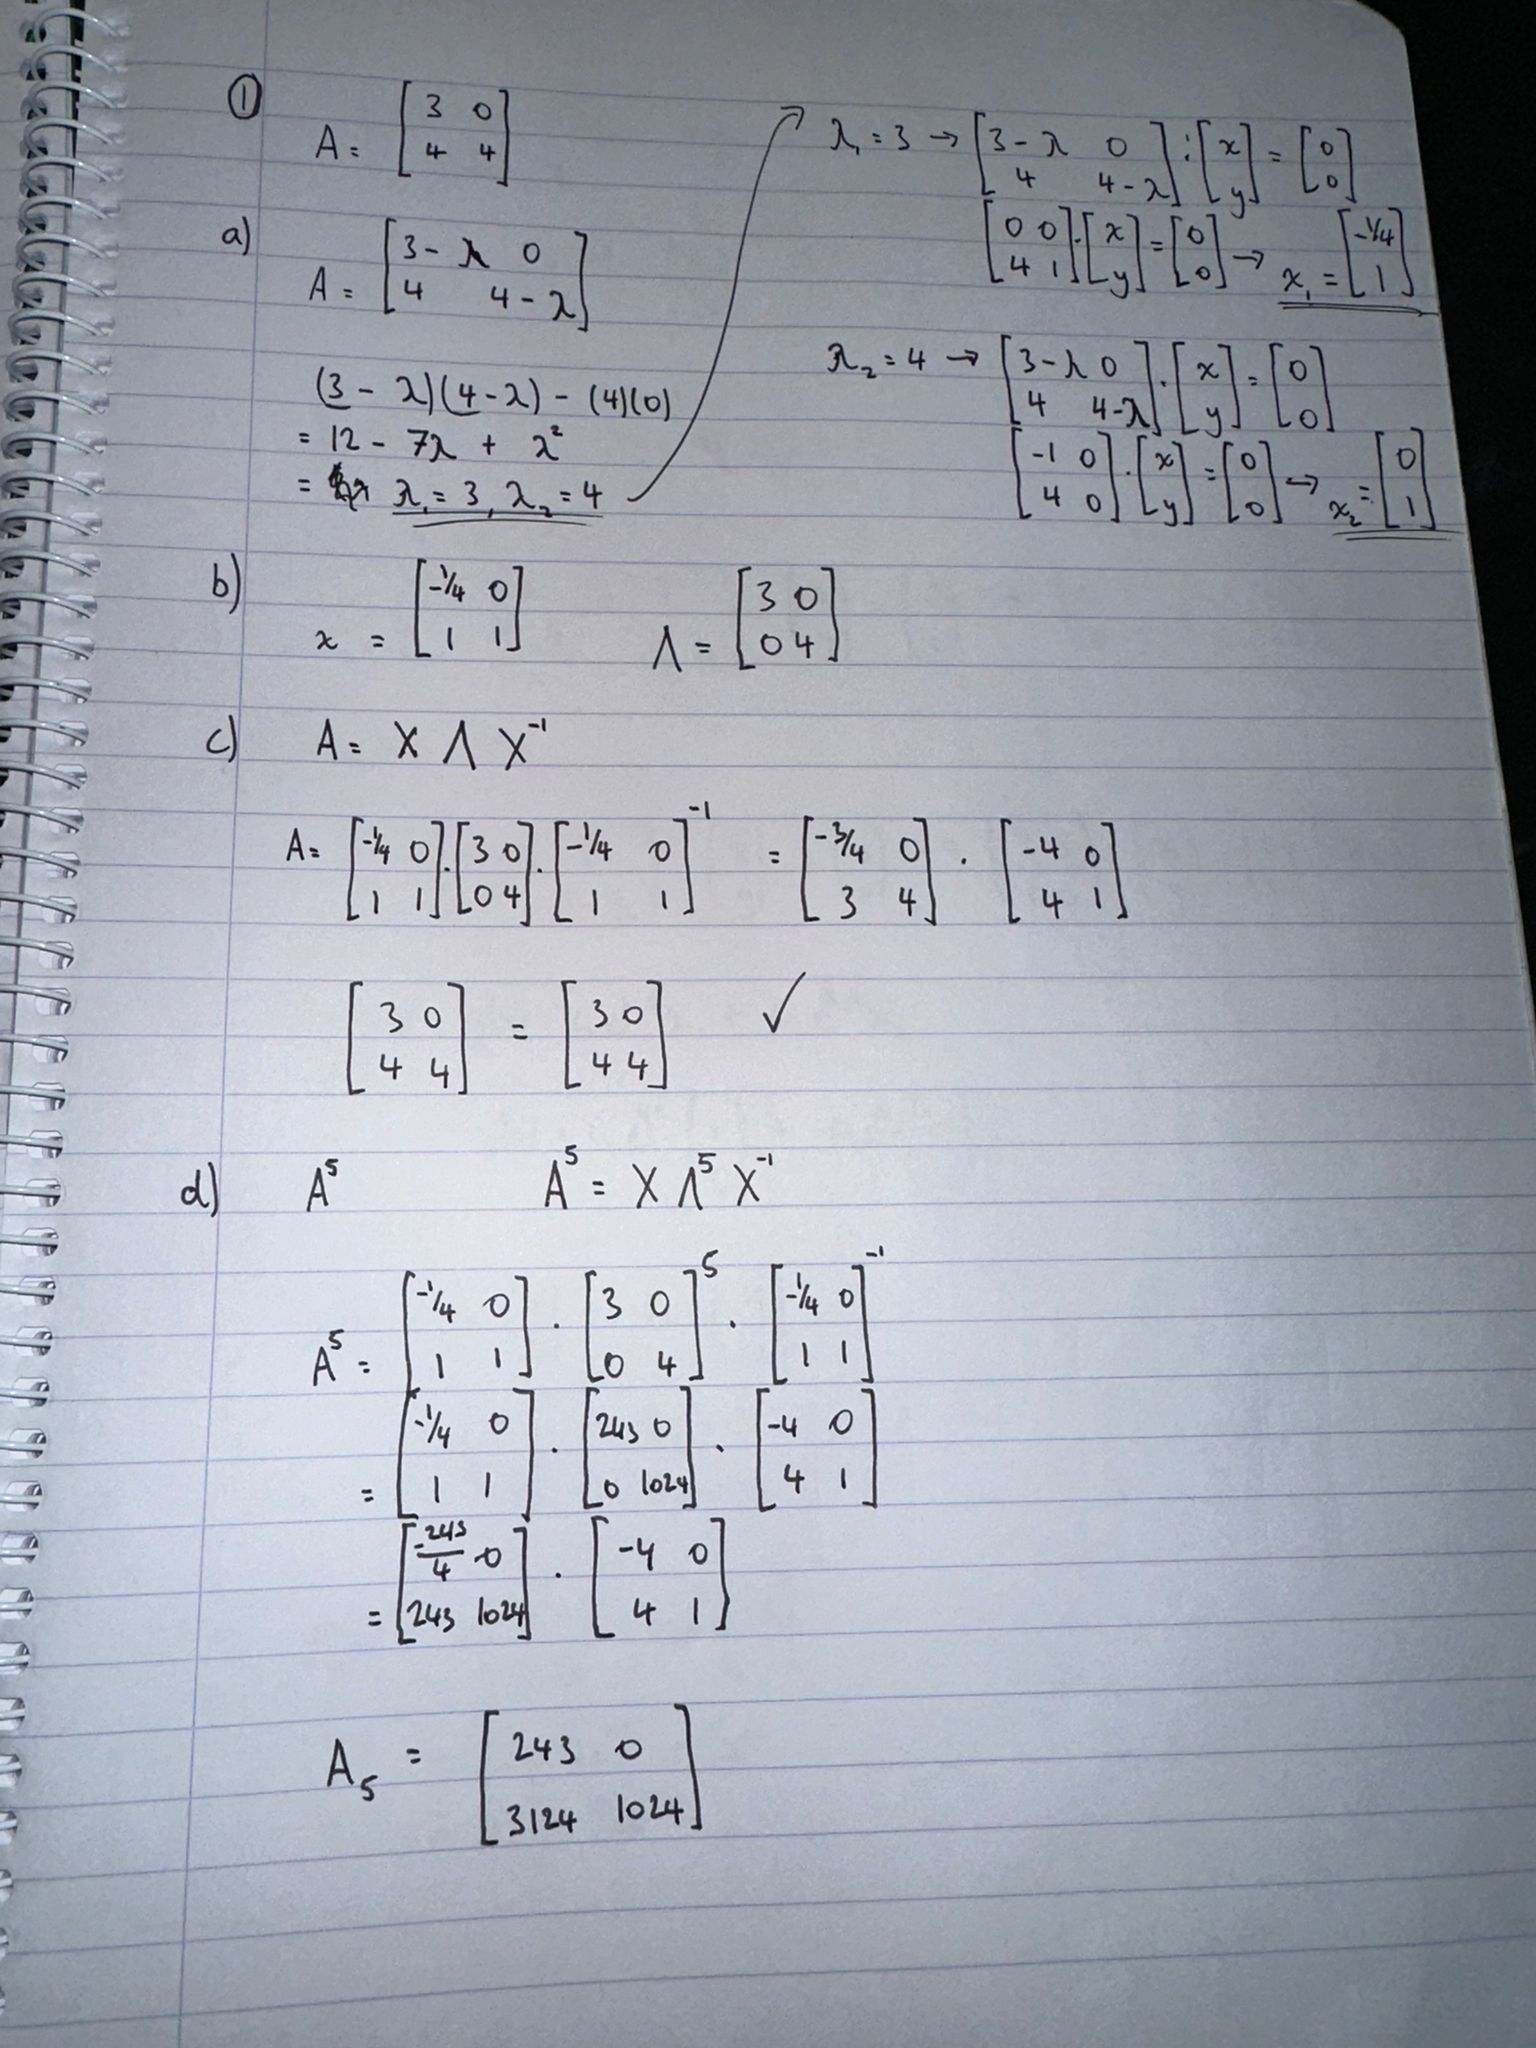 ① A = [3 0; 4 4]
a) A = [3-λ 0; 4 4-λ]
(3 - λ)(4-λ) - (4)(0)
= 12 - 7λ + λ²
= λ₁ = 3, λ₂ = 4
λ₁ = 3 → [3-λ 0; 4 4-λ] : [x; y] = [0; 0]
[0 0; 4 1] · [x; y] = [0; 0] → x₁ = [-1/4; 1]
λ₂ = 4 → [3-λ 0; 4 4-λ] · [x; y] = [0; 0]
[-1 0; 4 0] · [x; y] = [0; 0] → x₂ = [0; 1]
b) x = [-1/4 0; 1 1] Λ = [3 0; 0 4]
c) A = X Λ X⁻¹
A = [-1/4 0; 1 1] · [3 0; 0 4] · [-1/4 0; 1 1]⁻¹ = [-3/4 0; 3 4] · [-4 0; 4 1]
[3 0; 4 4] = [3 0; 4 4] ✓
d) A⁵ A⁵ = X Λ⁵ X⁻¹
A⁵ = [-1/4 0; 1 1] · [3 0; 0 4]⁵ · [-1/4 0; 1 1]⁻¹
= [-1/4 0; 1 1] · [243 0; 0 1024] · [-4 0; 4 1]
= [-243/4 0; 243 1024] · [-4 0; 4 1]
A₅ = [243 0; 3124 1024]